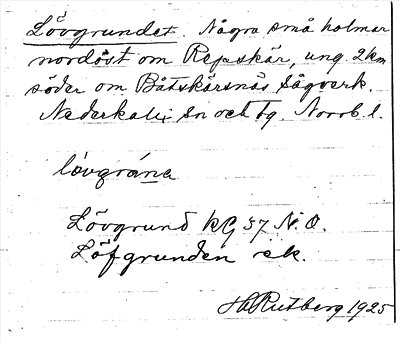 Lövgrundet. Några små holmar
nordöst om Repskär, ung. 2 km
söder om Båtskärsnäs Sågverk.
Nederkalix sn och tg. Norrb. l.
lövgrána
Lövgrund kG 57 N.O.
Löfgrunden ek.
Hd Rutberg 1925